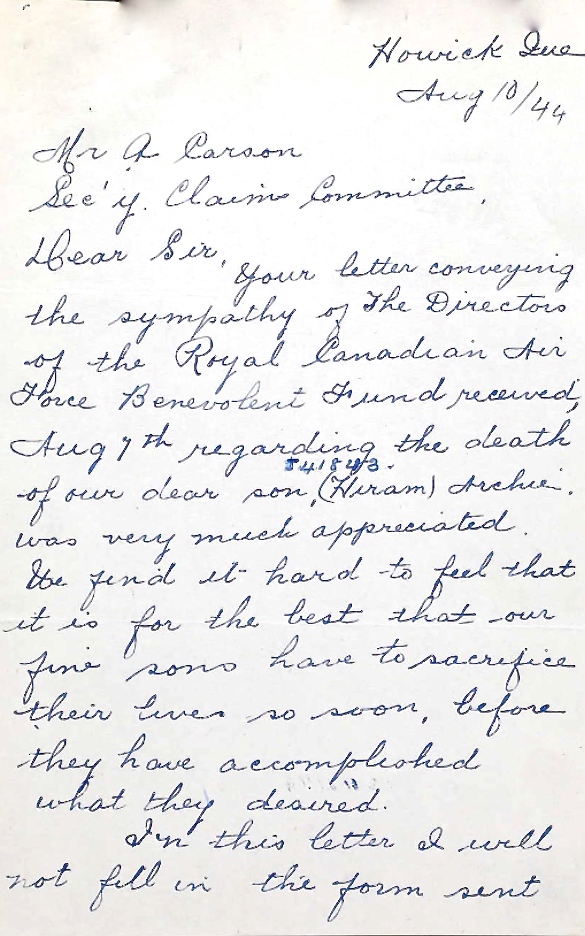 Howick Que
Aug 10/44
Mr A Carson
Sec'y. Claims Committee,
Dear Sir,
Your letter conveying
the sympathy of The Directors
of the Royal Canadian Air
Force Benevolent Fund received,
Aug 7th regarding the death
J41843.
of our dear son, (Hiram) Archie.
was very much appreciated.
We find it hard to feel that
it is for the best that our
fine sons have to sacrifice
their lives so soon, before
they have accomplished
what they desired.
In this letter I will
not fill in the form sent